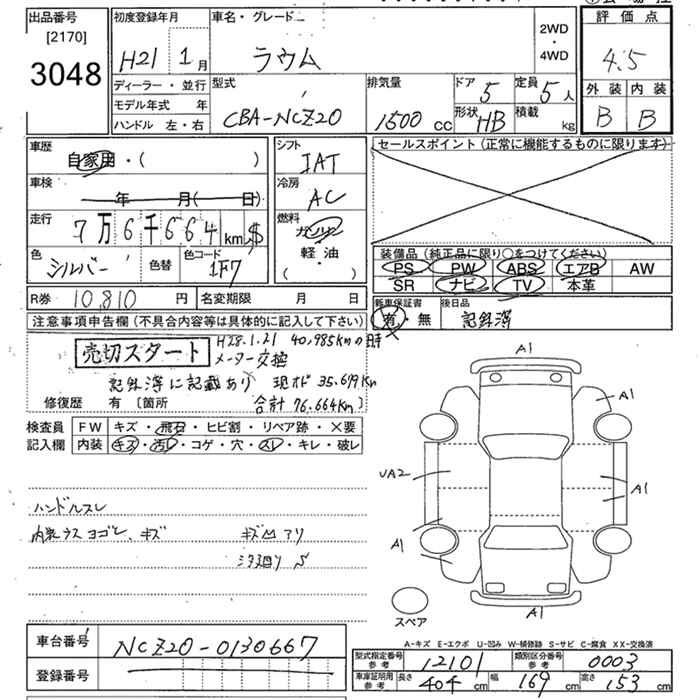 出品番号
[2170]
3048
初度登録年月
H21 1月
車名・グレード
ラウム
2WD
・
4WD
評価点
4.5
外装 内装
B B
ディーラー・並行
モデル年式 年
ハンドル 左・右
型式
CBA-NCZ20
排気量
1500 cc
ドア 5
形状 HB
定員 5人
積載 kg
車歴
自家用・( )
車検
年 月( 日)
走行
7万6千664km
色
シルバー
色替
色コード
1F7
シフト
IAT
冷房
AC
燃料
ガソリン
軽・油
( )
セールスポイント(正常に機能するものに限ります)
装備品(純正品に限り○をつけてください)
PS PW ABS エアB AW
SR ナビ TV 本革
R券 10,810円 名変期限 月 日
新車保証書
有・無
後日品
記録簿
注意事項申告欄(不具合内容等は具体的に記入して下さい)
売切スタート
H28.1.21 40,985kmの時
メーター交換
記録簿に記載あり 現オド35,679km
修復歴 有〔箇所 合計76,664km〕
検査員
記入欄
FW キズ・飛石・ヒビ割・リペア跡・×要
内装 キズ・汚レ・コゲ・穴・スレ・キレ・破レ
ハンドルスレ
内装ウスヨゴレ、キズ
キズ凹アリ
シタ廻りS
A1
A1
UA2
A1
A1
A1
スペア
A-キズ E-エクボ U-凹み W-補修跡 S-サビ C-腐食 XX-交換済
車台番号
NCZ20-0130667
登録番号
型式指定番号
参考
12101
類別区分番号
参考
0003
車庫証明用
参考
長さ 404cm 幅 169cm 高さ 153cm